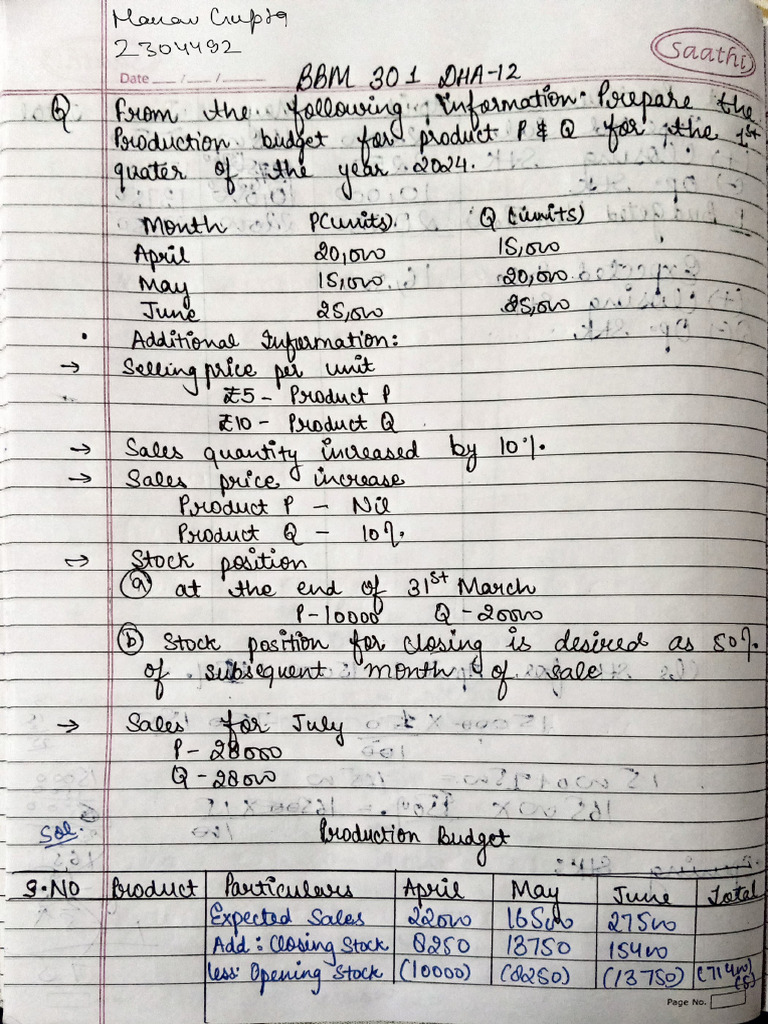 Manav Gupta
2304492
Saathi
Date __/__/__ BBM 301 DHA-12
Q From the following information. Prepare the
Production budget for product P & Q for the 1st
quater of the year 2024.
Month P(units) Q (units)
April 20,000 15,000
May 15,000 20,000
June 25,000 25,000
• Additional Information:
→ Selling price per unit
₹5 - Product P
₹10 - Product Q
→ Sales quantity increased by 10%.
→ Sales price increase
Product P - Nil
Product Q - 10%.
→ Stock position
(a) at the end of 31st March
P-10000 Q-20000
(b) Stock position for closing is desired as 50%.
of subsequent month of sale
→ Sales for July
P-28000
Q-28000
Sol. Production Budget
S.NO Product Particulars April May June Total
Expected Sales 22000 16500 27500
Add: Closing Stock 8250 13750 15400
less: Opening Stock (10000) (8250) (13750) (71400)
Page No.